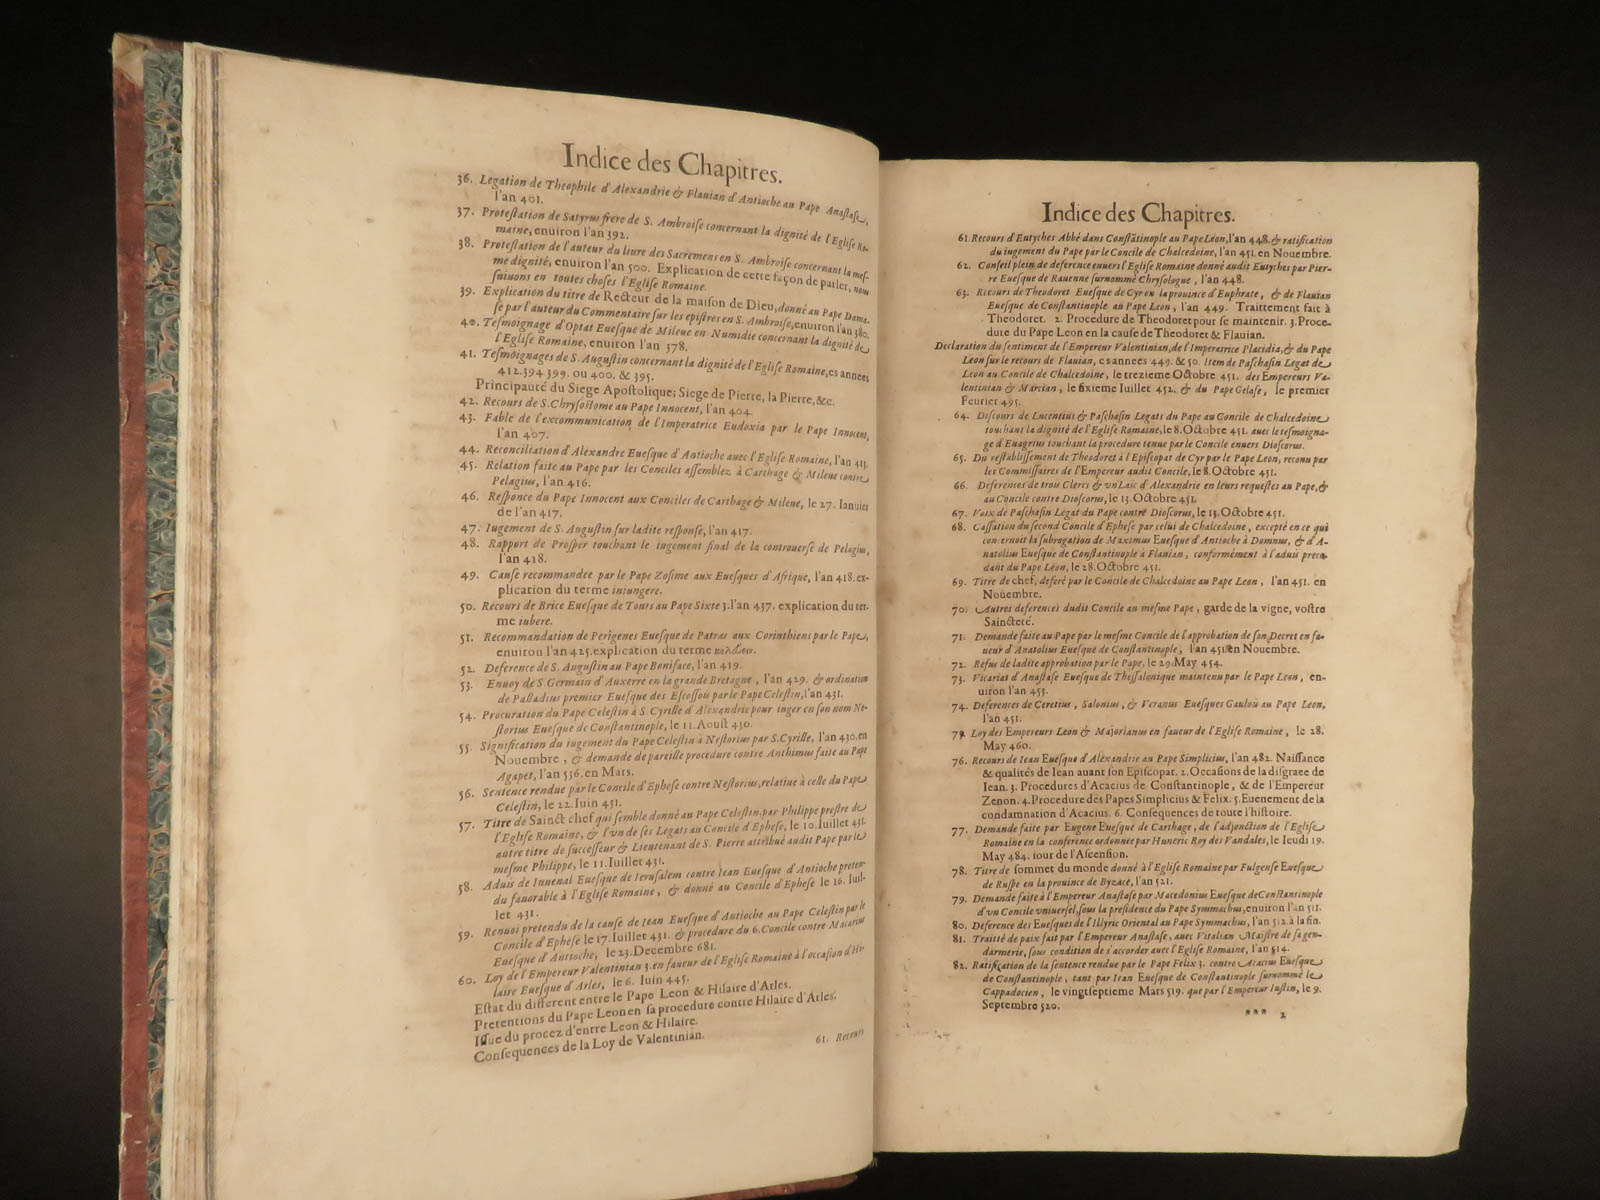 Indice des Chapitres.
36. Legation de Theophile d'Alexandrie & Flauian d'Antioche au Pape Anastase,
l'an 401.
37. Protestation de Satyrus frere de S. Ambroise concernant la dignité de l'Eglise Ro-
maine, enuiron l'an 392.
38. Protestation de l'auteur du liure des Sacremens en S. Ambroise concernant la mes-
me dignité, enuiron l'an 500. Explication de cette façon de parler, nous
suiuons en toutes choses l'Eglise Romaine.
39. Explication du titre de Recteur de la maison de Dieu, donné au Pape Dama-
se par l'auteur du Commentaire sur les epistres en S. Ambroise, enuiron l'an 380.
40. Tesmoignage d'Optat Euesque de Mileue en Numidie concernant la dignité de
l'Eglise Romaine, enuiron l'an 378.
41. Tesmoignages de S. Augustin concernant la dignité de l'Eglise Romaine, es années
412. 394 399. ou 400. & 395.
Principauté du Siege Apostolique; Siege de Pierre, la Pierre, &c.
42. Recours de S. Chrysostome au Pape Innocent, l'an 404.
43. Fable de l'excommunication de l'Imperatrice Eudoxia par le Pape Innocent,
l'an 407.
44. Reconciliation d'Alexandre Euesque d'Antioche auec l'Eglise Romaine, l'an 413.
45. Relation faite au Pape par les Conciles assemblez à Carthage & Mileue contre
Pelagius, l'an 416.
46. Responce du Pape Innocent aux Conciles de Carthage & Mileue, le 27. Ianuier
de l'an 417.
47. Iugement de S. Augustin sur ladite response, l'an 417.
48. Rapport de Prosper touchant le iugement final de la controuerse de Pelagius,
l'an 418.
49. Cause recommandee par le Pape Zosime aux Euesques d'Afrique, l'an 418. ex-
plication du terme iniungere.
50. Recours de Brice Euesque de Tours au Pape Sixte 3. l'an 437. explication du ter-
me iubere.
51. Recommandation de Perigenes Euesque de Patras aux Corinthiens par le Pape,
enuiron l'an 425. explication du terme
52. Deference de S. Augustin au Pape Boniface, l'an 419.
53. Enuoy de S. Germain d'Auxerre en la grande Bretagne, l'an 429. & ordination
de Palladius premier Euesque des Escossois par le Pape Celestin, l'an 431.
54. Procuration du Pape Celestin à S. Cyrille d'Alexandrie pour iuger en son nom Ne-
storius Euesque de Constantinople, le 11. Aoust 430.
55. Signification du iugement du Pape Celestin à Nestorius par S. Cyrille, l'an 430. en
Nouembre, & demande de pareille procedure contre Anthimus faite au Pape
Agapet, l'an 536. en Mars.
56. Sentence rendue par le Concile d'Ephese contre Nestorius, relatiue à celle du Pape
Celestin, le 22. Iuin 431.
57. Titre de Sainct chef qui semble donné au Pape Celestin, par Philippe prestre de
l'Eglise Romaine, & l'vn de ses Legats au Concile d'Ephese, le 10. Iuillet 431.
autre titre de successeur & Lieutenant de S. Pierre attribué audit Pape par le
mesme Philippe, le 11. Iuillet 431.
58. Aduis de Iuuenal Euesque de Ierusalem contre Iean Euesque d'Antioche preten-
du fauorable à l'Eglise Romaine, & donné au Concile d'Ephese le 16. Iuil-
let 431.
59. Renuoi pretendu de la cause de Iean Euesque d'Antioche au Pape Celestin par le
Concile d'Ephese le 17. Iuillet 431. & procedure du 6. Concile contre Macarius
Euesque d'Antioche, le 23. Decembre 681.
60. Loy de l'Empereur Valentinian 3. en faueur de l'Eglise Romaine à l'occasion d'Hi-
laire Euesque d'Arles, le 6. Iuin 445.
Estat du different entre le Pape Leon & Hilaire d'Arles.
Pretentions du Pape Leon en sa procedure contre Hilaire d'Arles.
Issue du procez d'entre Leon & Hilaire.
Consequences de la Loy de Valentinian.
61. Recours
Indice des Chapitres.
61. Recours d'Eutyches Abbé dans Constātinople au Pape Leon, l'an 448. & ratification
du iugement du Pape par le Concile de Chalcedoine, l'an 451. en Nouembre.
62. Conseil plein de deference enuers l'Eglise Romaine donné audit Eutyches par Pier-
re Euesque de Rauenne surnommé Chrysologue, l'an 448.
63. Recours de Theodoret Euesque de Cyr en la prouince d'Euphrate, & de Flauian
Euesque de Constantinople au Pape Leon, l'an 449. Traittement fait à
Theodoret. 2. Procedure de Theodoret pour se maintenir. 3. Proce-
dure du Pape Leon en la cause de Theodoret & Flauian.
Declaration du sentiment de l'Empereur Valentinian, de l'Imperatrice Placidia, & du Pape
Leon sur le recours de Flauian, es années 449. & 50. Item de Paschasin Legat de
Leon au Concile de Chalcedoine, le trezieme Octobre 451. des Empereurs Va-
lentinian & Marcian, le sixieme Iuillet 452. & du Pape Gelase, le premier
Feurier 495.
64. Discours de Lucentius & Paschasin Legats du Pape au Concile de Chalcedoine
touchant la dignité de l'Eglise Romaine, le 8. Octobre 451. auec le tesmoigna-
ge d'Euagrius touchant la procedure tenue par le Concile enuers Dioscorus.
65. Du restablissement de Theodoret à l'Episcopat de Cyr par le Pape Leon, reconu par
les Commissaires de l'Empereur audit Concile, le 8. Octobre 451.
66. Deferences de trois Clercs & vn Laic d'Alexandrie en leurs requestes au Pape, &
au Concile contre Dioscorus, le 13. Octobre 451.
67. Voix de Paschasin Legat du Pape contre Dioscorus, le 13. Octobre 451.
68. Cassation du second Concile d'Ephese par celui de Chalcedoine, excepté en ce qui
concernoit la subrogation de Maximus Euesque d'Antioche à Domnus, & d'A-
natolius Euesque de Constantinople à Flauian, conformément à l'aduis prece-
dant du Pape Leon, le 28. Octobre 451.
69. Titre de chef, deferé par le Concile de Chalcedoine au Pape Leon, l'an 451. en
Nouembre.
70. Autres deferences dudit Concile au mesme Pape, garde de la vigne, vostre
Saincteté.
71. Demande faite au Pape par le mesme Concile de l'approbation de son Decret en fa-
ueur d'Anatolius Euesque de Constantinople, l'an 451. en Nouembre.
72. Refus de ladite approbation par le Pape, le 29. May 454.
73. Vicariat d'Anastase Euesque de Thessalonique maintenu par le Pape Leon, en-
uiron l'an 453.
74. Deferences de Ceretius, Salonius, & Veranus Euesques Gaulois au Pape Leon,
l'an 451.
75. Loy des Empereurs Leon & Majorianus en faueur de l'Eglise Romaine, le 28.
May 460.
76. Recours de Iean Euesque d'Alexandrie au Pape Simplicius, l'an 482. Naissance
& qualités de Iean auant son Episcopat. 2. Occasions de la disgrace de
Iean. 3. Procedures d'Acacius de Constantinople, & de l'Empereur
Zenon. 4. Procedure des Papes Simplicius & Felix. 5. Euenement de la
condamnation d'Acacius. 6. Consequences de toute l'histoire.
77. Demande faite par Eugene Euesque de Carthage, de l'adjonction de l'Eglise
Romaine en la conference ordonnee par Huneric Roy des Vandales, le Ieudi 19.
May 484. iour de l'Ascension.
78. Titre de sommet du monde donné à l'Eglise Romaine par Fulgense Euesque
de Ruspe en la prouince de Byzace, l'an 521.
79. Demande faite à l'Empereur Anastase par Macedonius Euesque de Constantinople
d'vn Concile vniuersel, sous la presidence du Pape Symmachus, enuiron l'an 511.
80. Deference des Euesques de l'Illyric Oriental au Pape Symmachus, l'an 512 à la fin.
81. Traitté de paix fait par l'Empereur Anastase, auec Vitalian Maistre de sa gen-
darmerie, sous condition de s'accorder auec l'Eglise Romaine, l'an 514.
82. Ratification de la sentence rendue par le Pape Felix 3. contre Acacius Euesque
de Constantinople, tant par Iean Euesque de Constantinople surnommé le
Cappadocien, le vingtseptieme Mars 519. que par l'Empereur Iustin, le 9.
Septembre 520.
*** 2